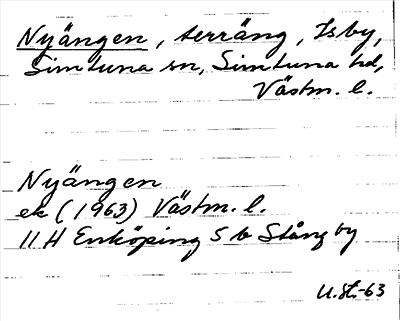 Nyängen, terräng, Isby,
Simtuna sn, Simtuna hd,
Västm. l.
Nyängen
ek (1963) Västm. l.
11 H Enköping 5 b Stångby
U.St.-63